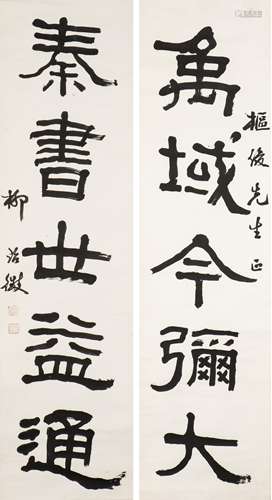 禹域今彌大
樞俊先生正
秦書世益通
柳詒徵